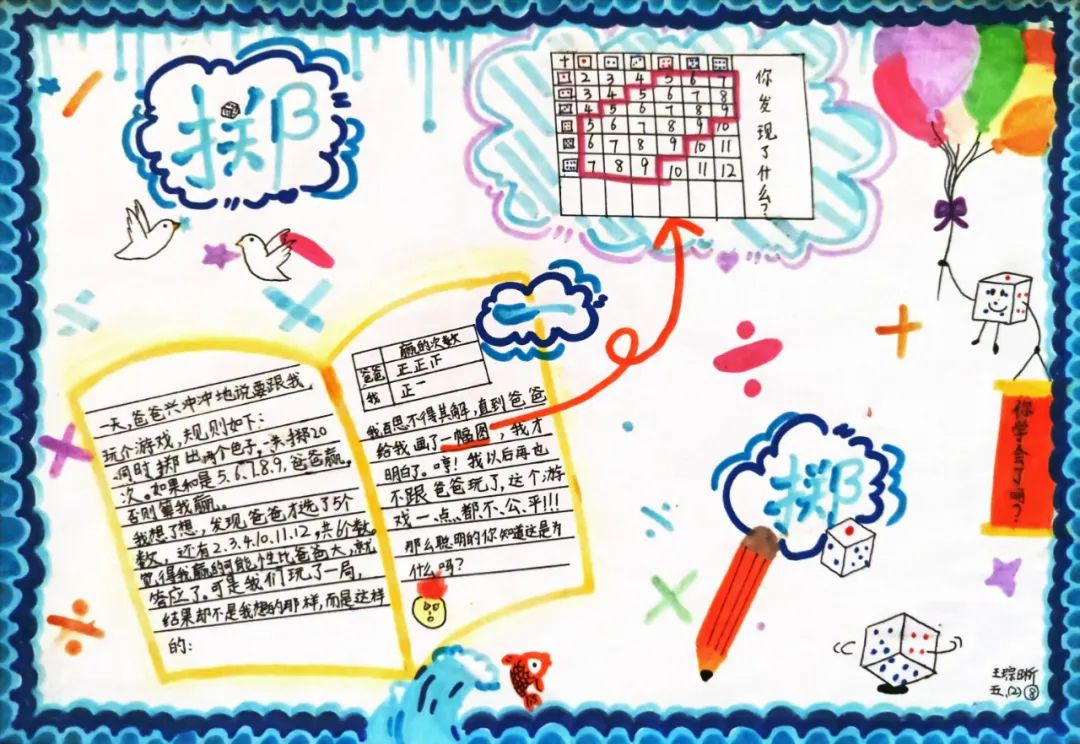 掷一掷
+
2 3 4 5 6 7
3 4 5 6 7 8
4 5 6 7 8 9
5 6 7 8 9 10
6 7 8 9 10 11
7 8 9 10 11 12
你发现了什么?
一天,爸爸兴冲冲地说要跟我
玩个游戏,规则如下:
同时掷出两个色子,一共掷20
次。如果和是5、6、7、8、9,爸爸赢,
否则算我赢。
我想了想,发现爸爸才选了5个
数,还有2、3、4、10、11、12,共6个数。
觉得我赢的可能性比爸爸大,就
答应了。可是我们玩了一局,
结果却不是我想的那样,而是这样
的:
赢的次数
爸爸 正正正
我 正
我百思不得其解,直到爸爸
给我画了一幅图,我才
明白了。哼!我以后再也
不跟爸爸玩了,这个游
戏一点都不公平!!!
那么聪明的你知道这是为
什么吗?
你学会了吗?
王琮晰
五、(2) ⑧